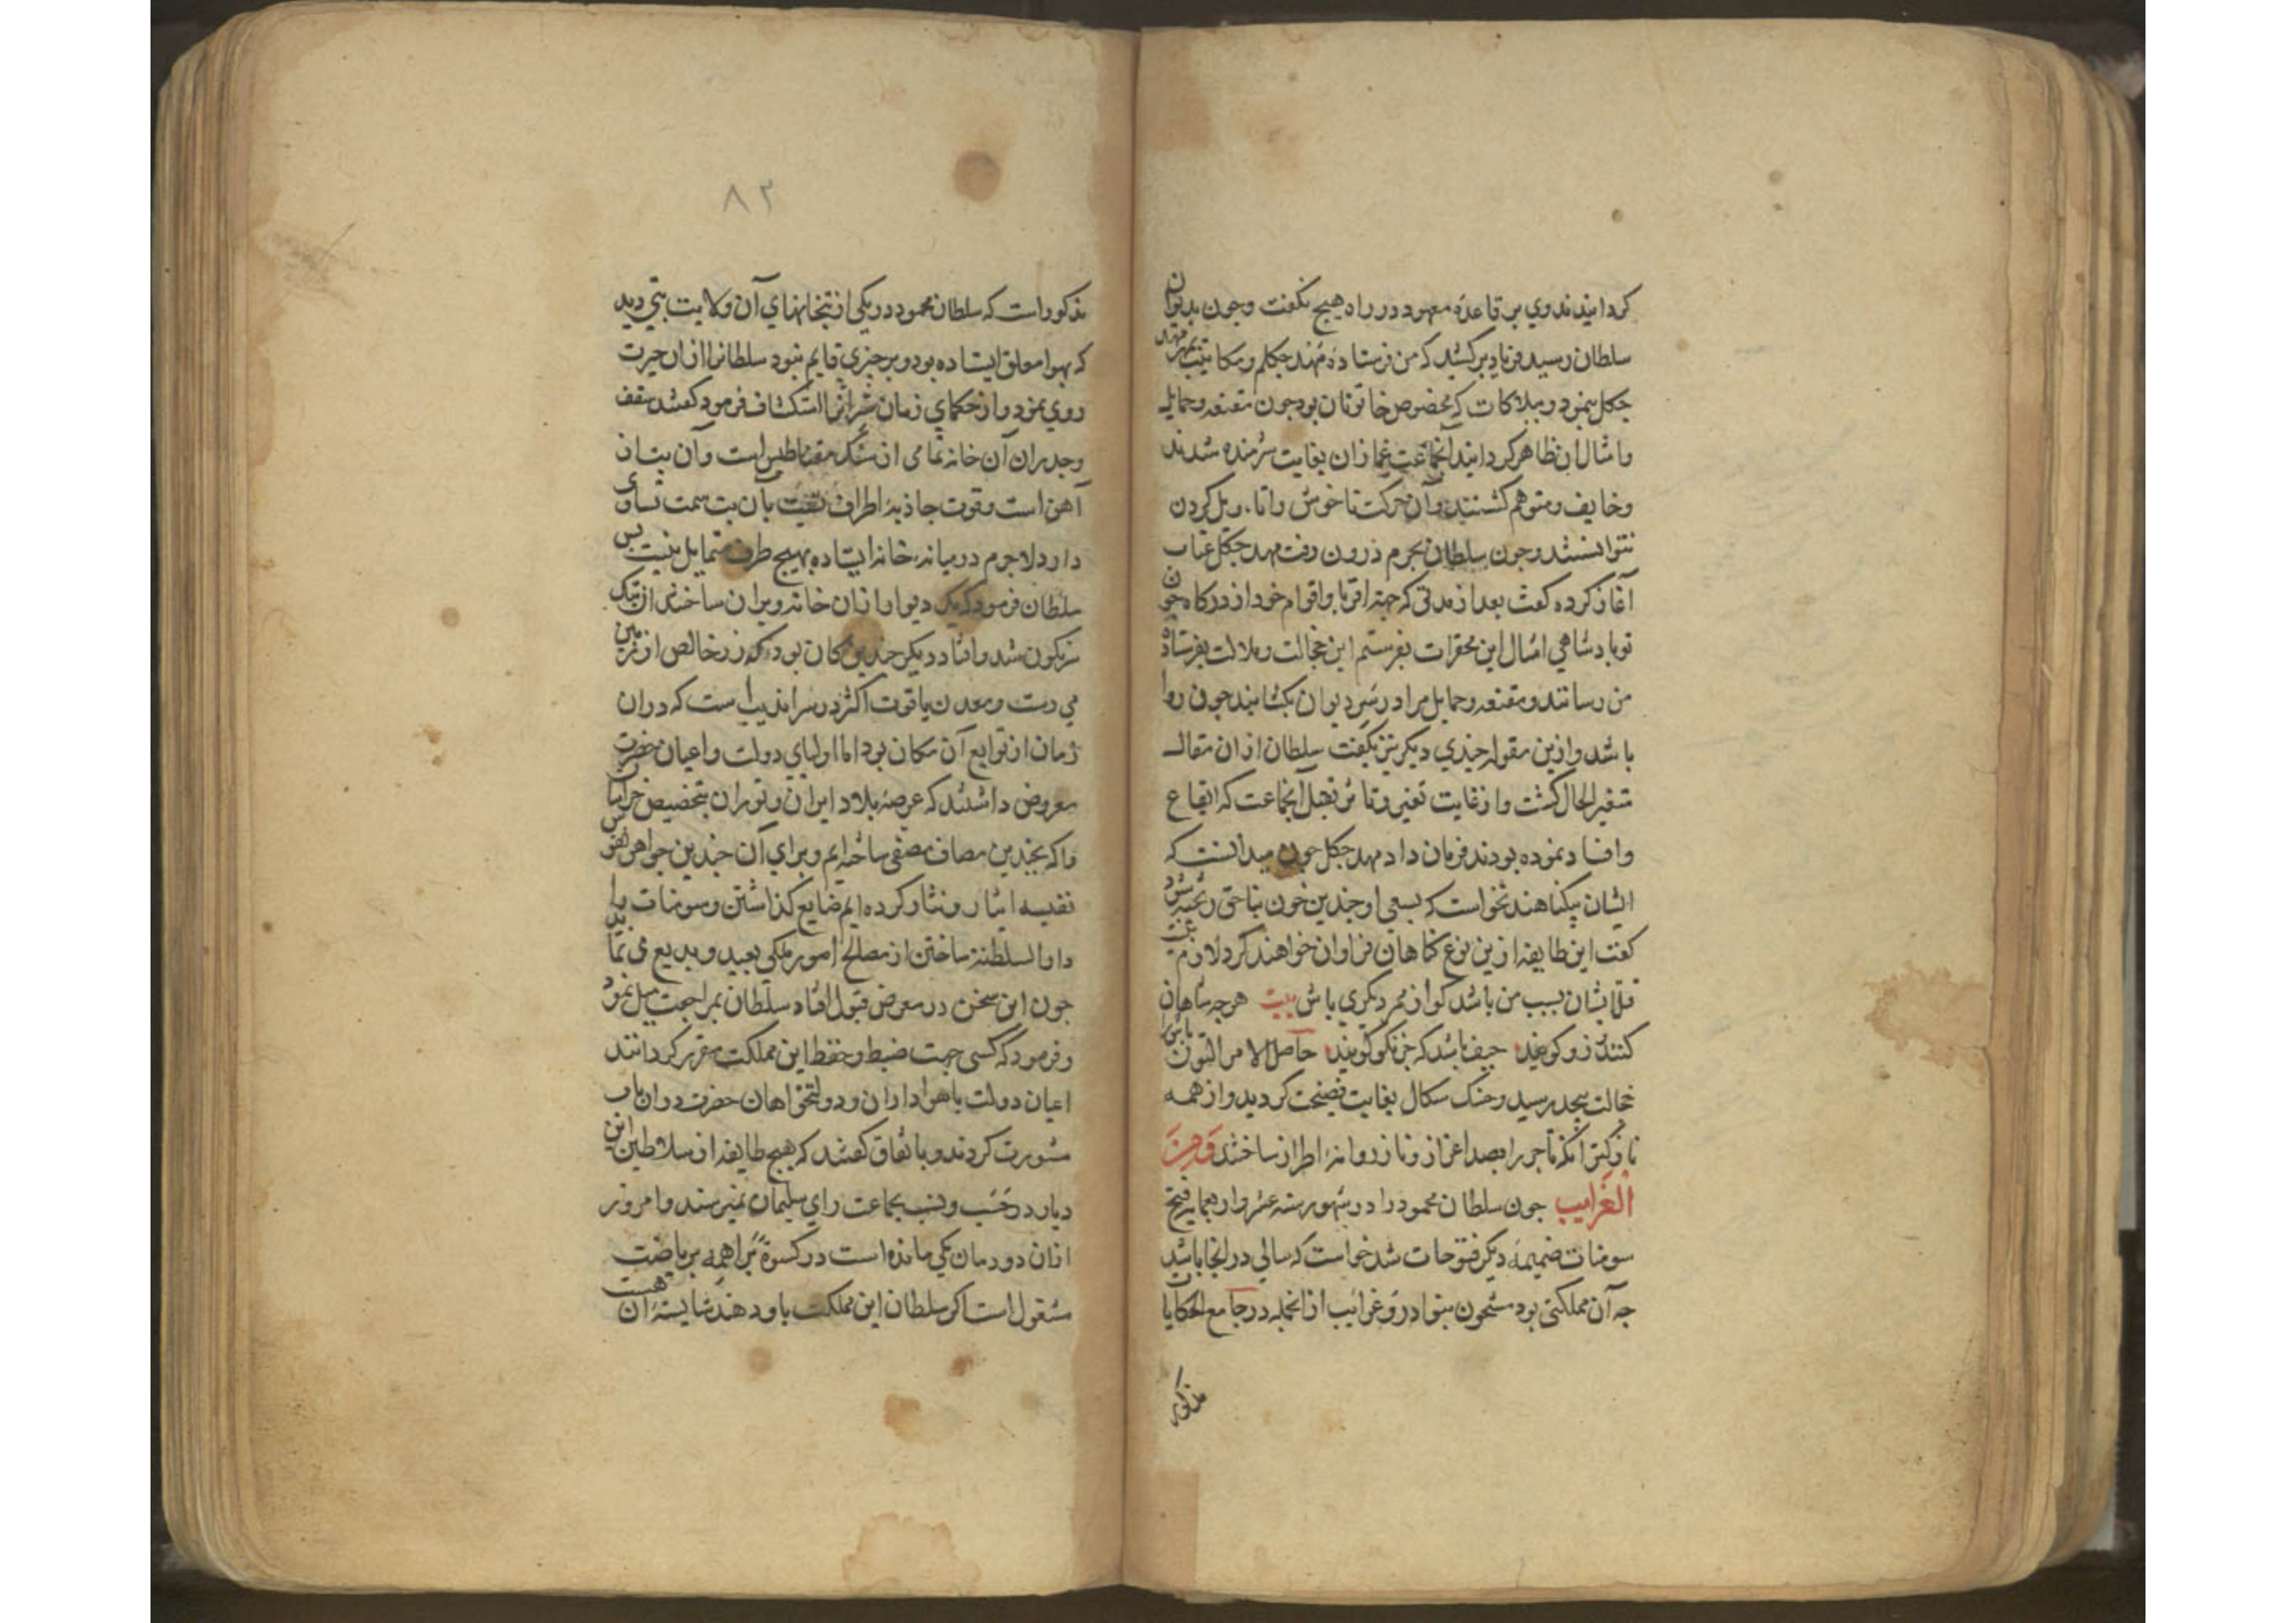 کردانیدند وی بر قاعدهٔ معهود در راه هیچ نکفت و چون بدیوان
سلطان رسید فریاد برکشید که من فرستادهٔ مهد چکلم و مکاتیب بمهر مهد
چکل بنمود و ببلاکات که مخصوص خاتونان بود چون مقنعه و حمایل
و امثال ان ظاهر کردانید انجماعت غمازان بغایت شرمنده شدند
و خایف و متوهم کشتند و آن حرکت ناخوش را تاویل کردن
نتوانستند و چون سلطان بحرم درون رفت مهد چکل عتاب
آغاز کرده کفت بعد از مدتی که جهة اقربا و اقوام خود از درکاه چون
تو پادشاهی امثال این محقرات بفرستم این خجالت و ملالت بفرستادهٔ
من رسانند و مقنعه و حمایل مرا در سر دیوان بکشایند چون روا
باشد و ازین مقوله چندی دیکر نیز بکفت سلطان ازان مقاله
متغیر الحال کشت و از غایت تغیر و تاثر بقتل آنجماعت که ایقاع
و افساد نموده بودند فرمان داد مهد چکل چون میدانست که
ایشان بیکناهند نخواست که بسعی او چندین خون بناحق ریخته شود
کفت این طایفه ازین نوع کناهان فراوان خواهند کرد لازم نیست
قتل ایشان بسبب من باشد کو از ممر دیکری باش بیت هر چه شاهان
کنند زو کویند حیف باشد که جز نکو کویند حاصل الامر التون تاش را
خجالت بیحد رسید و حنک سکال بغایت فضیحت کردید و از همه
نازکتر انکه تاجر را بصد اعزاز و ناز روانهٔ اطراز ساختند و من
الغرایب چون سلطان محمود را در شهور سنه عشر و اربعمایه فتح
سومنات ضمیمهٔ دیکر فتوحات شد خواست که سالی در انجا باشد
چه آن مملکتی بود مشحون بنوادر و غرایب از انجمله در جامع الحکایات
مذکور
۸۲
مذکور است که سلطان محمود در یکی از بتخانهای آن ولایت بتی دید
که بهوا معلق ایستاده بود و بر چیزی قایم نبود سلطانرا ازان حیرت
روی نمود و از حکمای زمان سر انرا استکشاف فرمود کفتند سقف
و جدران آن خانه تمامی از سنک مقناطیس است و آن بت از
آهن است و قوت جاذبه اطراف نسبت بآن بت سمت تساوی
دارد لاجرم در میانه خانه ایستاده بهیچ طرف متمایل نیست پس
سلطان فرمود که یک دیوار ازان خانه ویران ساختند ان بتک
سرنکون شد و افتاد دیکر چندین کان بود که زر خالص از زمین
می رست و معدن یاقوت اکثر در سراندیب است که دران
زمان از توابع آن مکان بود اما اولیای دولت و اعیان حضرت
معروض داشتند که عرصهٔ بلاد ایران و توران بتخصیص خراسان
را که بچندین مصاف مصفی ساخته ایم و برای آن چندین جواهر نفوس
نفیسه ایثار و نثار کرده ایم ضایع کذاشتن و سومنات را
دارالسلطنة ساختن از مصالح امور ملکی بعید و بدیع می نماید
چون این سخن در معرض قبول افتاد سلطان بمراجعت میل نمود
و فرمود که کسی جهت ضبط و حفظ این مملکت مقرر کردانند
اعیان دولت با هواداران و دولتخواهان حضرت دران باب
مشورت کردند و باتفاق کفتند که هیچ طایفه از سلاطین این
دیار در حسب و نسب بجماعت رای سلیمان نمیرسند و امروز
ازان دودمان یکی مانده است در کسوة براهمه بریاضت
مشغول است اکر سلطان این مملکت باو دهند شایستهٔ آن هست